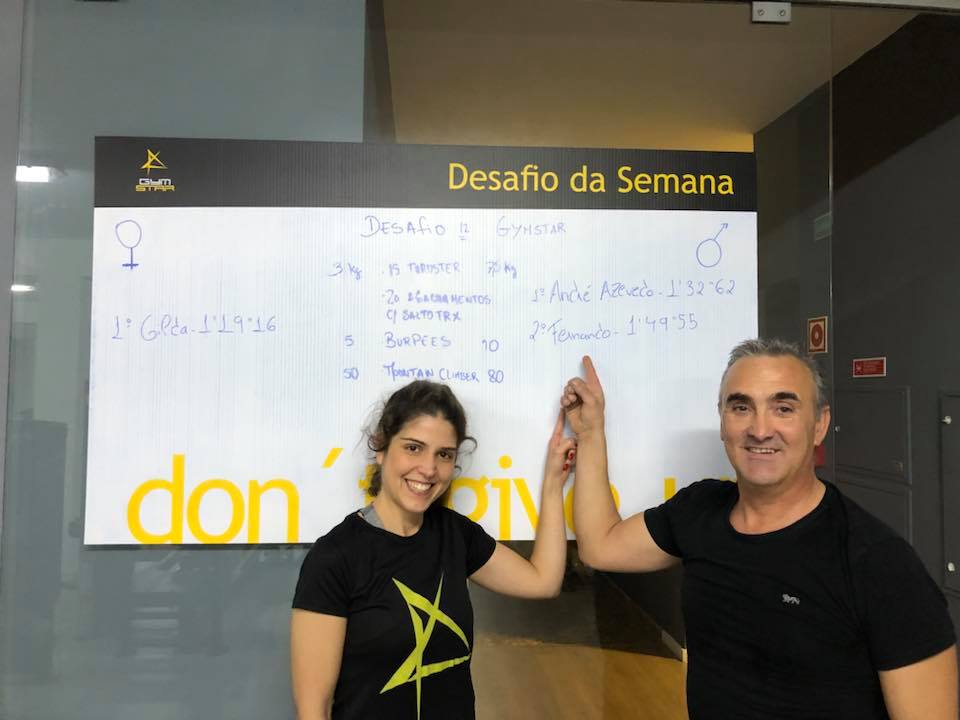 GYM
STAR
Desafio da Semana
DESAFIO 12 GYMSTAR
3 kg . 15 THRUSTER kg
. 20 AGACHAMENTOS
C/ SALTO TRX
5 BURPEES 10
50 MOUNTAIN CLIMBER 80
1º 1'19"16
1º André Azevedo - 1'32"62
2º Fernando - 1'49"55
don´t give u